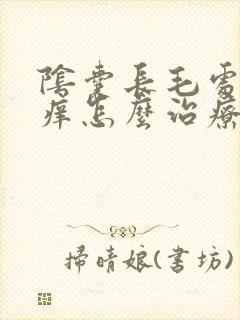 陰囊長毛處
癢怎麼治療
掃晴娘(書坊)